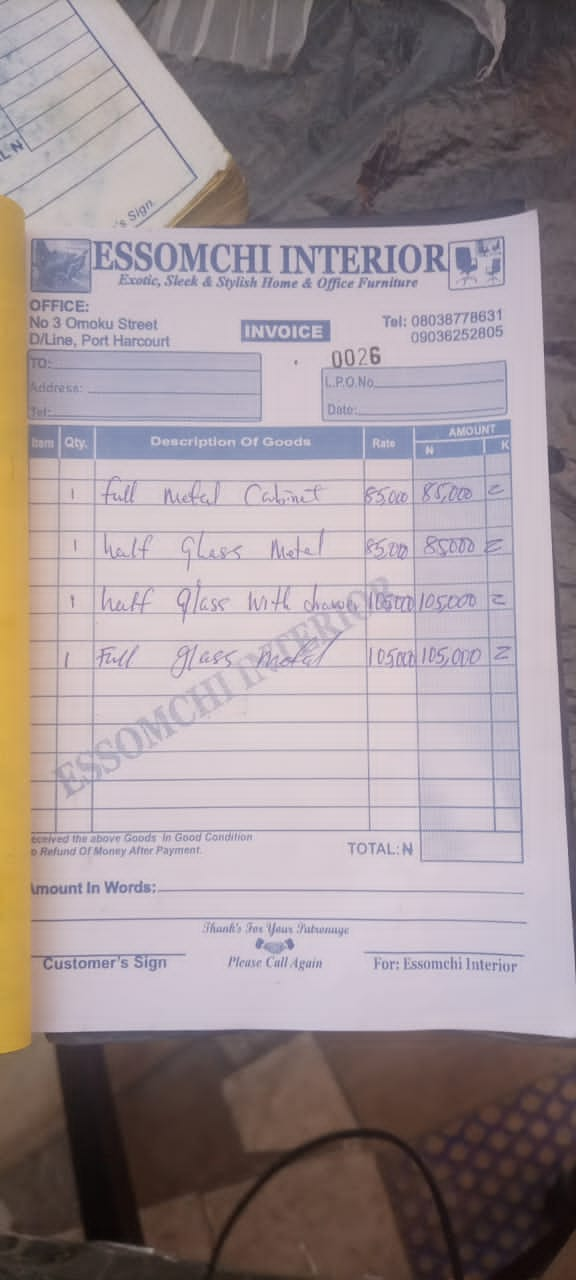 L N
's Sign.
ESSOMCHI INTERIOR
Exotic, Sleek & Stylish Home & Office Furniture
OFFICE:
No 3 Omoku Street
D/Line, Port Harcourt
INVOICE
Tel: 08038778631
09036252805
0026
TO:
Address:
Tel:
L.P.O.No
Date:
Item Qty. Description Of Goods Rate AMOUNT
N K
1 full metal Cabinet 85000 85,000 =
1 half Glass Metal 85000 85000 =
1 half glass with drawer 105000 105,000 =
1 Full glass metal 105000 105,000 =
ESSOMCHI INTERIOR
eceived the above Goods In Good Condition
o Refund Of Money After Payment.
TOTAL: N
Amount In Words:
Thank's For Your Patronage
Customer's Sign
Please Call Again
For: Essomchi Interior